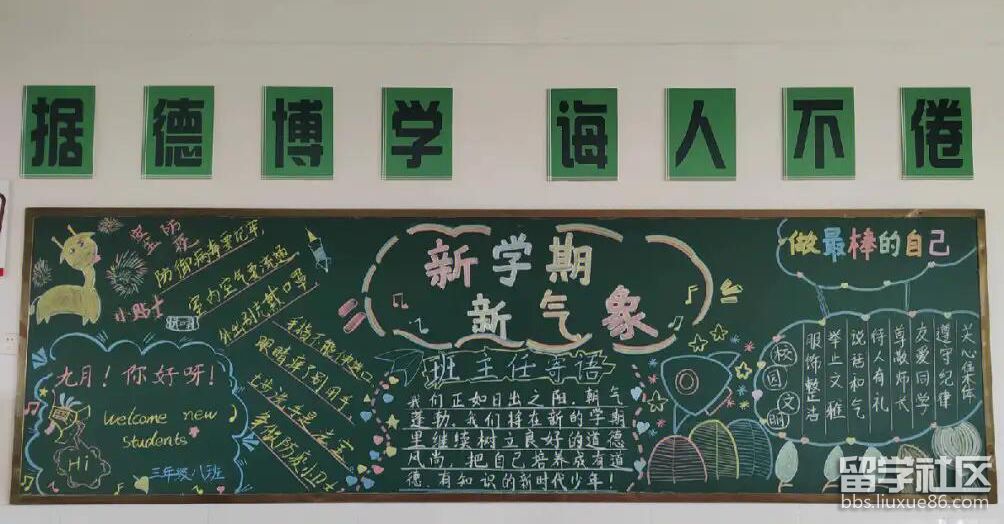 据德博学 诲人不倦
安全防疫
小贴士
防御病毒要记牢
室内空气要流通
外出别忘戴口罩
手指不能沾进口
眼睛痒了别用手
七步洗手是法宝
争做防疫小卫士
新学期
新气象
做最棒的自己
九月！你好呀！
welcome new
students
Hi
三年级八班
班主任寄语
我们正如日出之阳，朝气
蓬勃。我们将在新的学期
里继续树立良好的道德
风尚，把自己培养成有道
德、有知识的新时代少年！
校园文明
服饰整洁
举止文雅
说话和气
待人有礼
尊敬师长
友爱同学
遵守纪律
关心集体
留学社区
bbs.liuxue86.com